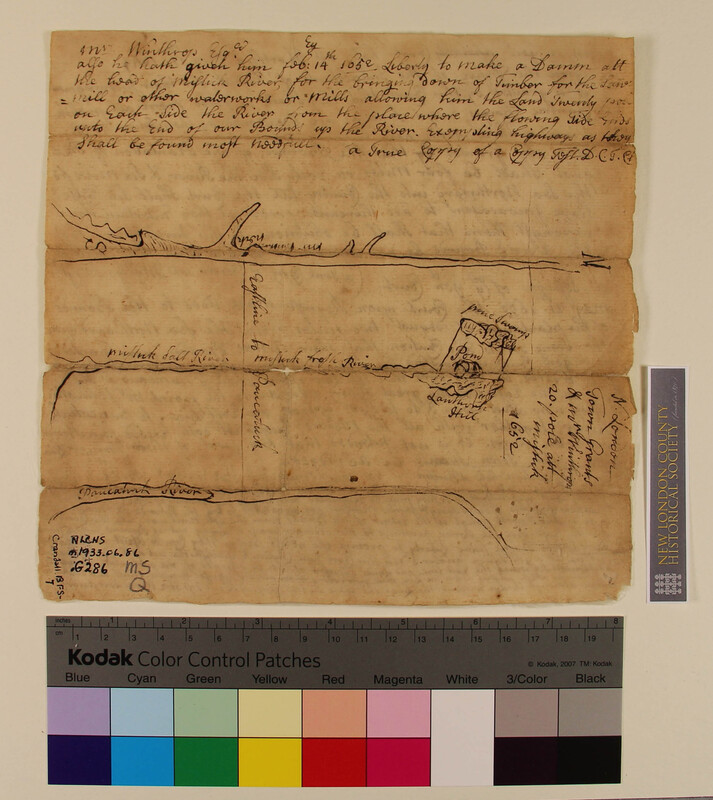 Mr Winthrop Esqr
also he hath given him feb: 14th 1652 Liberty to make a Damm att
the head of Mistick River, for the bringing Down of Timber for the Saw
mill or other waterworks or Mills allowing him the Land Twenty pole
on Each side the River from the place where the flowing Ends
unto the End of our Bounds up the River. Excepting highways as they
Shall be found most needfull. a True Coppy of a Coppy Test. D. C.
N
Eastline to Paucatuck
pine Swamp
Pond
Lanthorn
Hill
mistick Salt River
mistick fresh River
N London
Town Grants
& mr Winthrop
20. pole att
mistick
1652
Paucatuck River
NLCHS
1933.06.86
G286
MS
Q
Crandall BFS-
7
NEW LONDON COUNTY
HISTORICAL SOCIETY
inches 1 2 3 4 5 6 7 8
cm 1 2 3 4 5 6 7 8 9 10 11 12 13 14 15 16 17 18 19
Kodak Color Control Patches
© Kodak, 2007 TM: Kodak
Blue Cyan Green Yellow Red Magenta White 3/Color Black